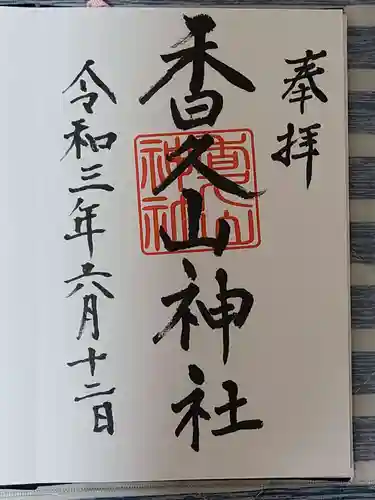 奉拝
香久山神社
令和三年六月十二日